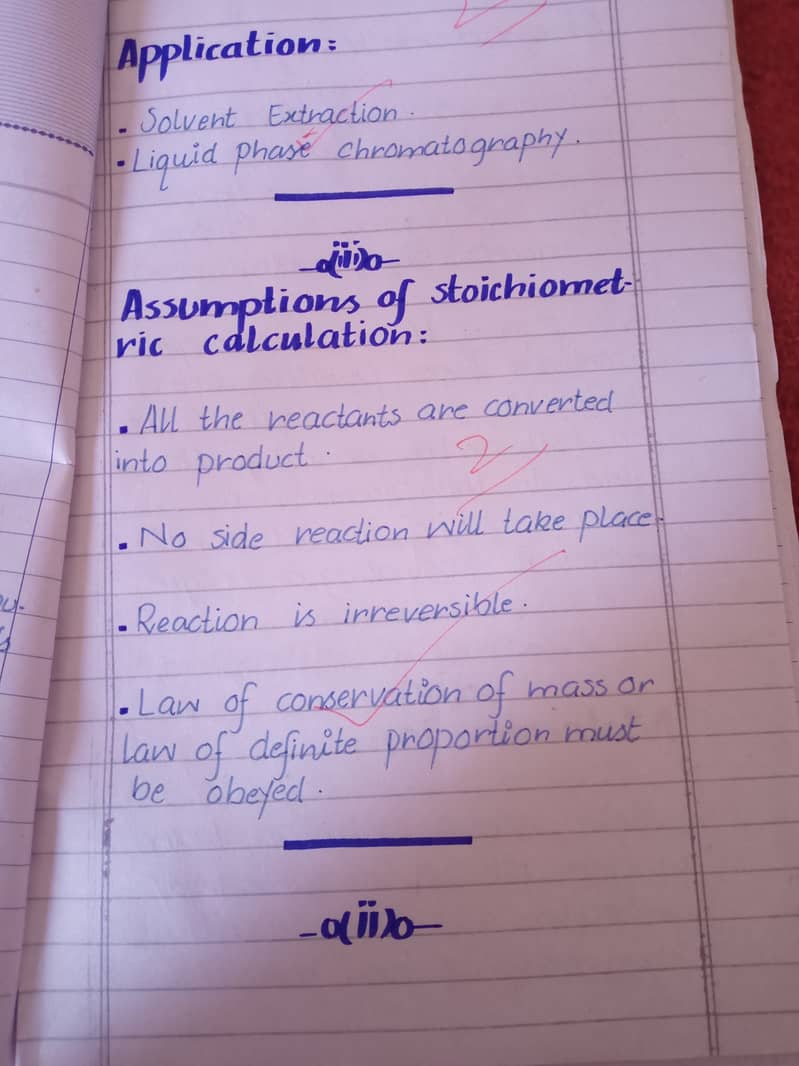 Application:
. Solvent Extraction.
. Liquid phase chromatography.
(iii)
Assumptions of stoichiomet-
ric calculation:
. All the reactants are converted
into product.
2
. No side reaction will take place.
. Reaction is irreversible.
. Law of conservation of mass or
law of definite proportion must
be obeyed.
(ii)